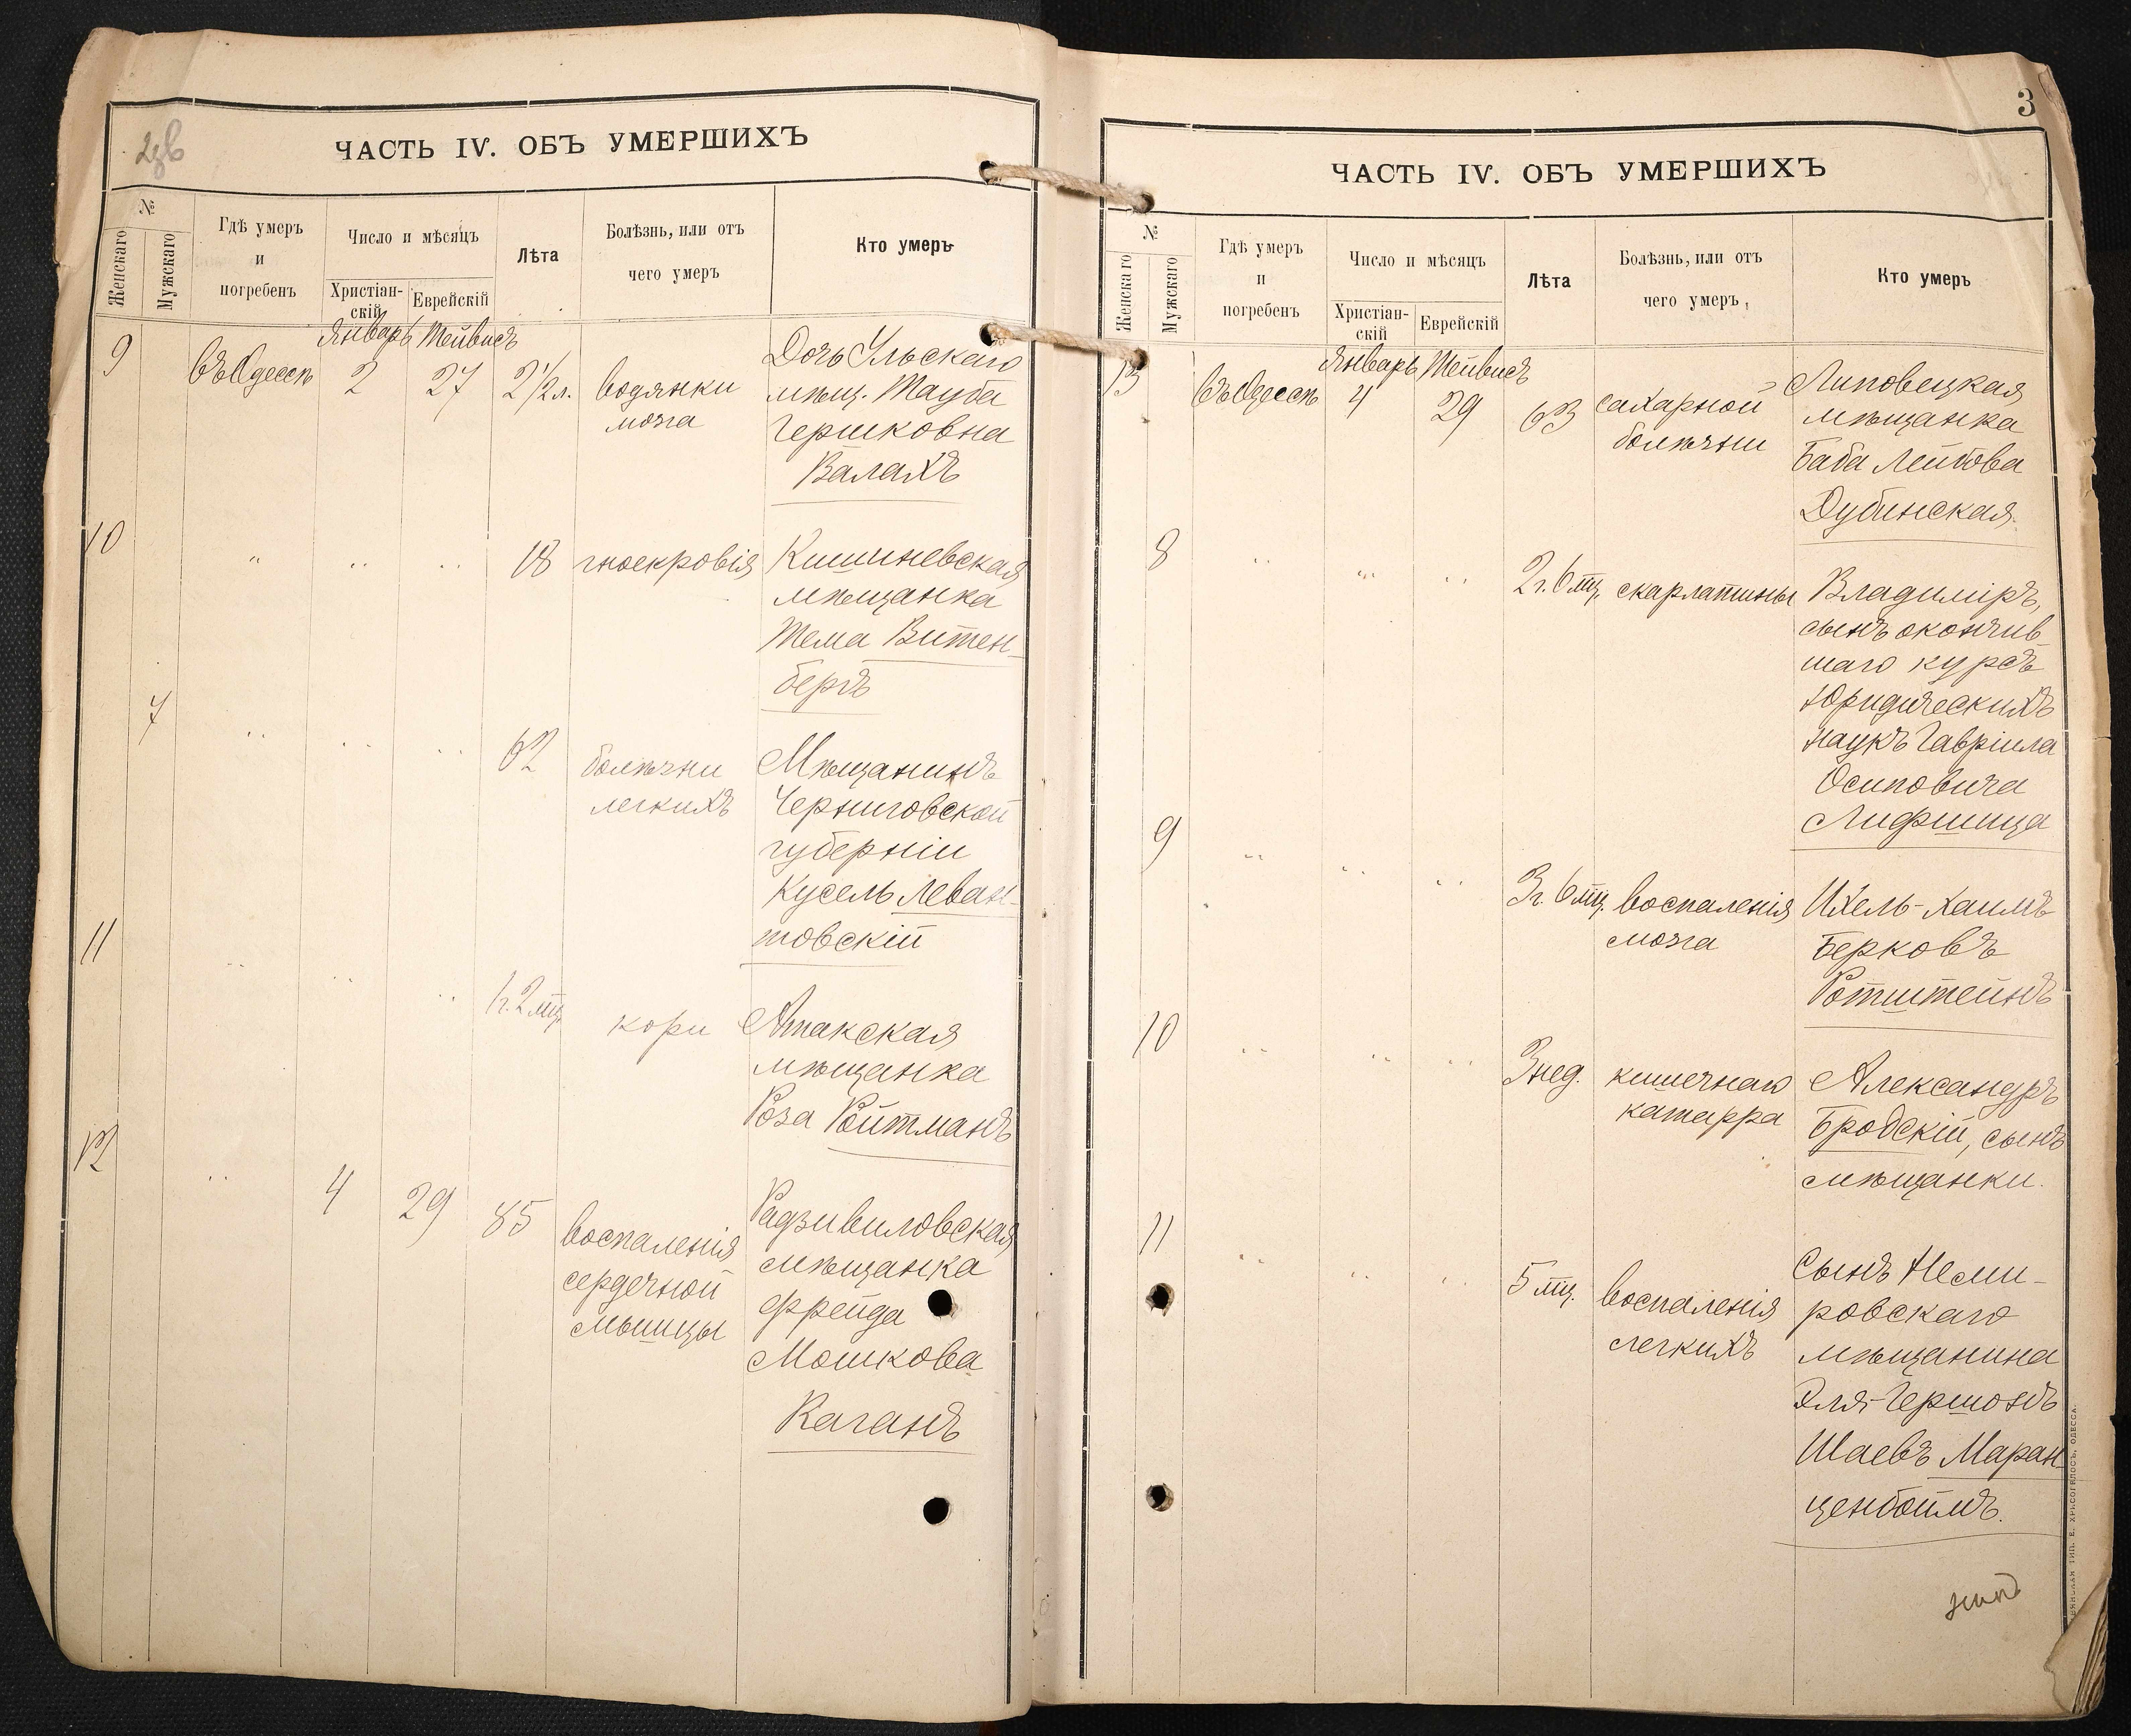 ЧАСТЬ IV. ОБЪ УМЕРШИХЪ
№
Женскаго
Мужскаго
Гдѣ умеръ
и
погребенъ
Число и мѣсяцъ
Христіан-
скій
Еврейскій
Лѣта
Болѣзнь, или отъ
чего умеръ
Кто умеръ
Январь Тейвисъ
9 въ Одессѣ 2 27 2 1/2 л. водянки мозга
Дочь Ульскаго
мѣщ. Тауба
Гершковна
Валахъ
10 " " " 18 гноекровія
Кишиневская
мѣщанка
Тема Витен-
бергъ
7 " " " 62 болѣзни легкихъ
Мѣщанинъ
Черниговской
губерніи
Кусель Леван-
товскій
11 " " " 1 г. 2 мц. кори
Атакская
мѣщанка
Роза Ройтманъ
12 " 4 29 85 воспаленія сердечной мышцы
Радзивиловская
мѣщанка
Фрейда
Мошкова
Каганъ
3
ЧАСТЬ IV. ОБЪ УМЕРШИХЪ
№
Женскаго
Мужскаго
Гдѣ умеръ
и
погребенъ
Число и мѣсяцъ
Христіан-
скій
Еврейскій
Лѣта
Болѣзнь, или отъ
чего умеръ
Кто умеръ
Январь Тейвисъ
13 въ Одессѣ 4 29 63 сахарной болѣзни
Липовецкая
мѣщанка
Баба Лейбова
Дубинская.
8 " " " 2 г. 6 мц. скарлатины
Владиміръ,
сынъ окончив-
шаго курсъ
Юридическихъ
наукъ Гавріила
Осиповича
Лифшица
9 " " " 3 г. 6 мц. воспаленія мозга
Ихель-Хаимъ
Берковъ
Ротштейнъ
10 " " " 3 нед. кишечнаго катарра
Александръ
Бродскій, сынъ
мѣщанки.
11 " " " 5 мц. воспаленія легкихъ
Сынъ Неми-
ровскаго
мѣщанина
Эля-Гершонъ
Шаевъ Маран-
ценбоймъ.